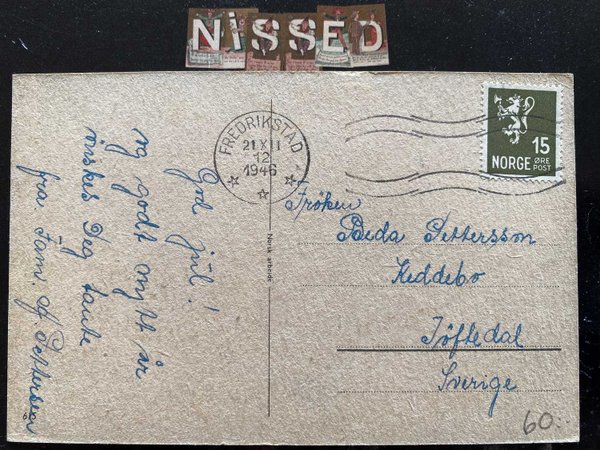 NiSSED
FREDRIKSTAD
21 XII
12
1946
15
NORGE ØRE
POST
God jul!
og godt nytt år
ønskes Deg tante
fra Fam. Pettersen
Norsk arbeide
Frøken
Beda Pettersson
Keddebo
Töftedal
Sverige
60:-